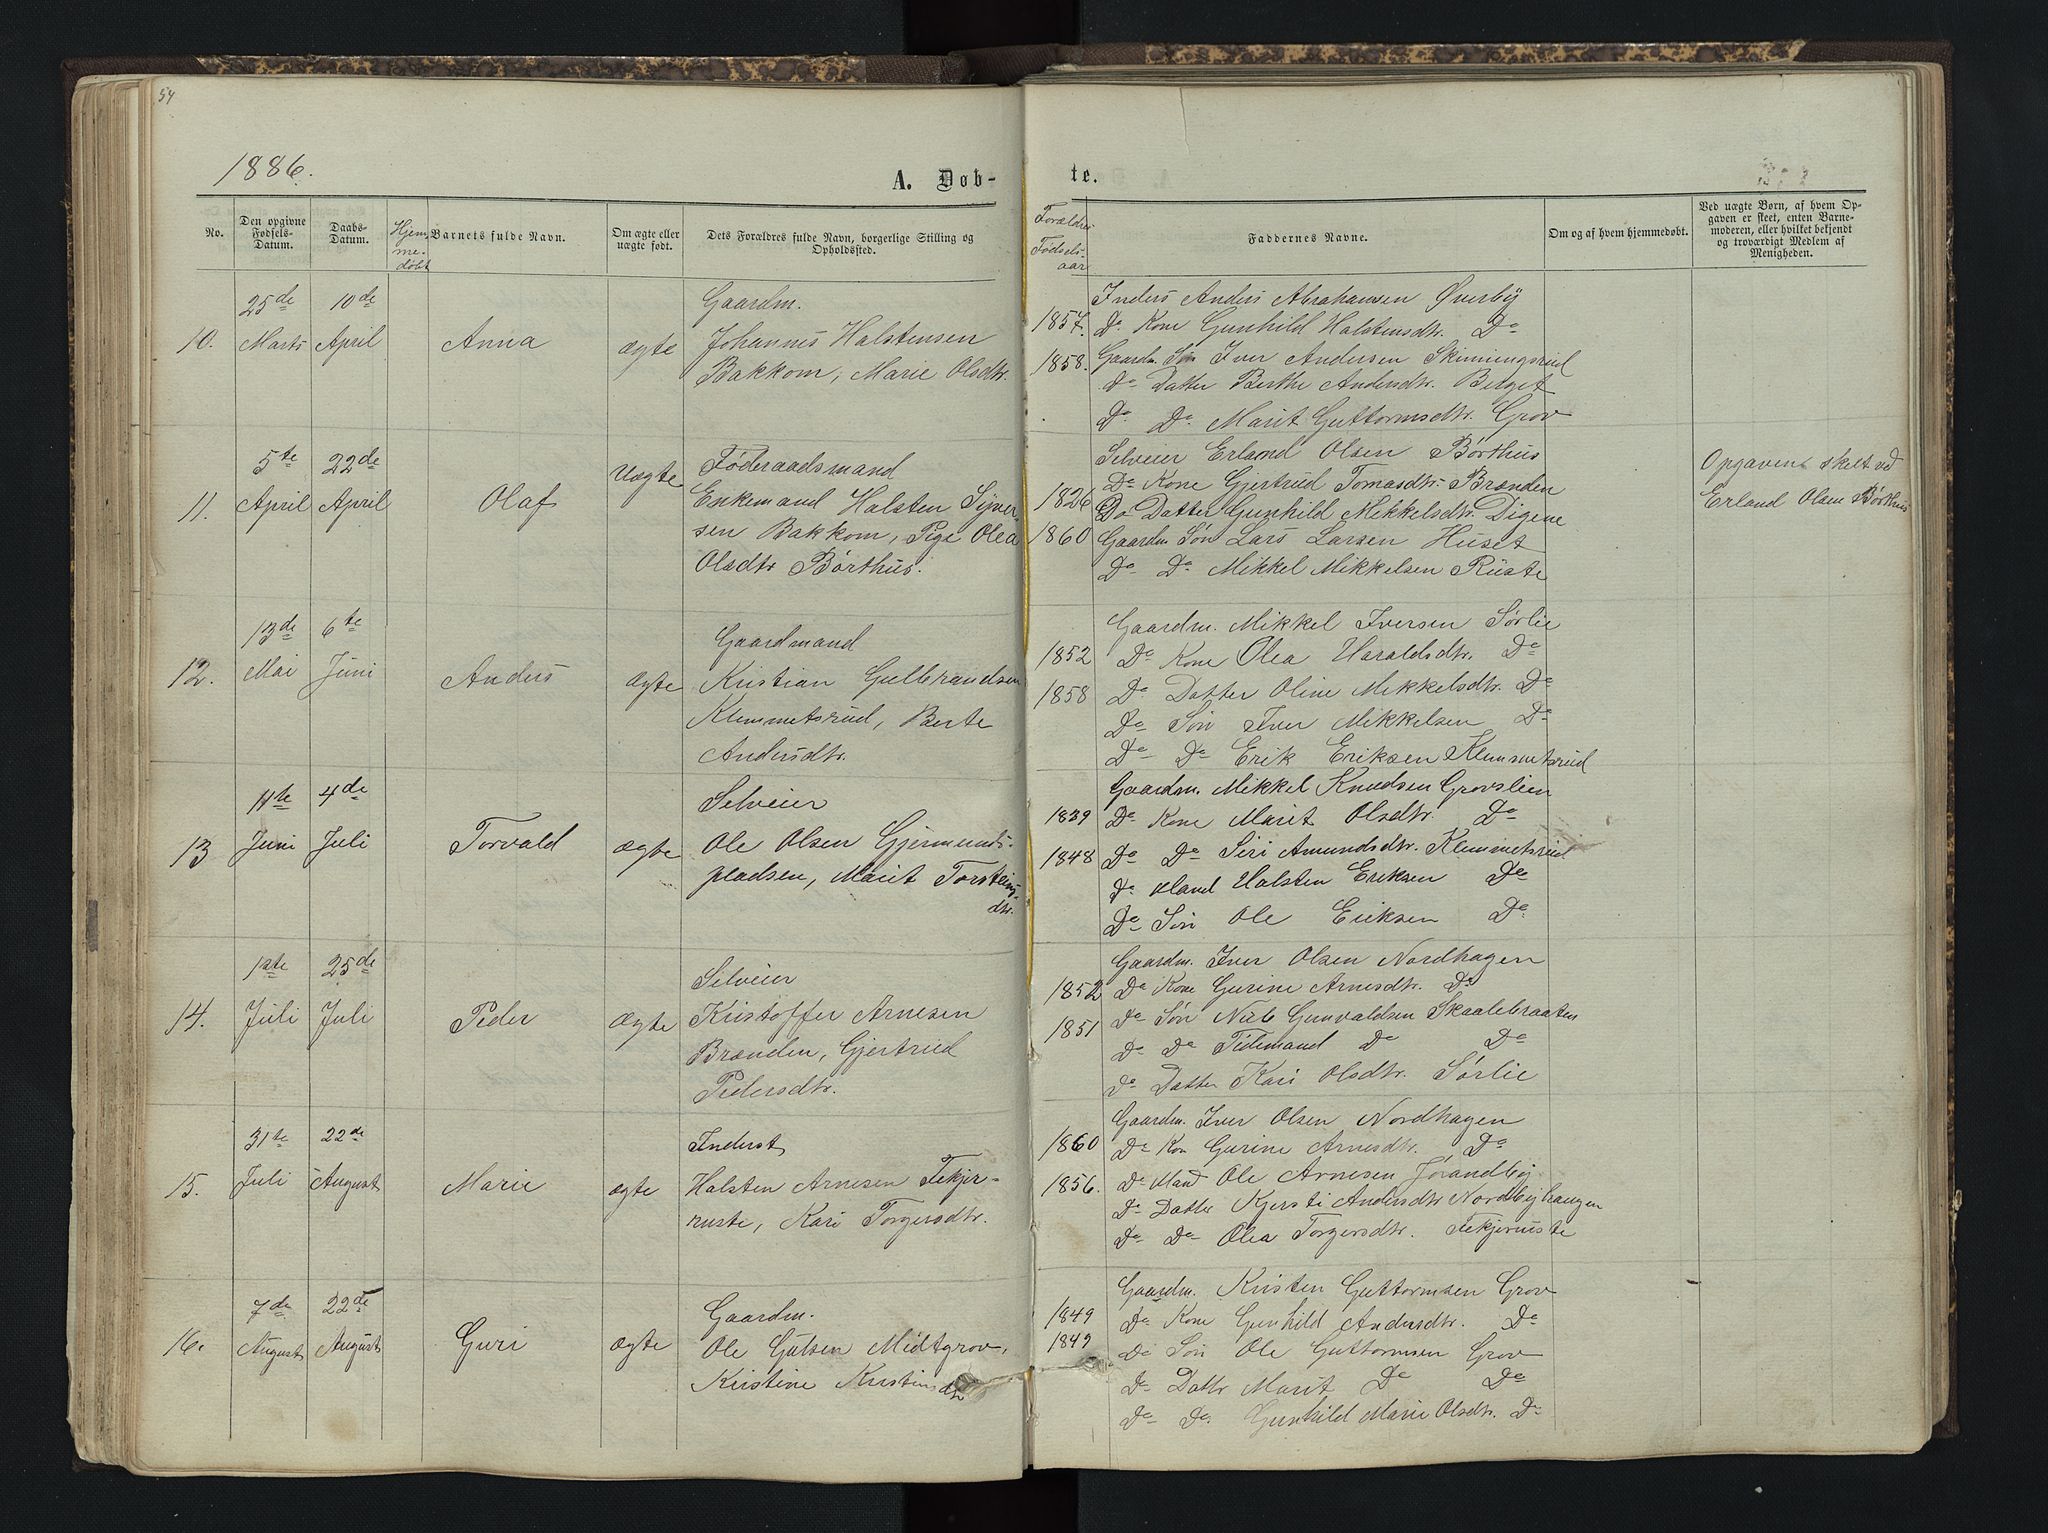 54
1886.
A. Døb-
te.
No.
Den opgivne Fødsels-Datum.
Daabs-Datum.
Hjem-me-døbt
Barnets fulde Navn.
Om ægte eller uægte født.
Dets Forældres fulde Navn, borgerlige Stilling og Opholdssted.
Forældres Fødsels-aar
Faddernes Navne.
Om og af hvem hjemmedøbt.
Ved uægte Børn, af hvem Op-
gaven er skeet, enten Barne-
moderen, eller hvilket bekjendt
og troværdigt Medlem af
Menigheden.
10.
25de Marts
10de April
Anna
ægte
Gaardm.
Johannes Halstensen
Bakkom, Marie Olsdtr.
1857.
1858.
Inders Anders Abrahamsen Øverby
Do Kone Gunhild Halstensdtr. Do
Gaardm. Søn Iver Andersen Skinningsrud
Do Datter Berthe Andersdtr. Berget
Do Do Marit Guttormsdtr. Grov
11.
5te April
22de April
Olaf
Uægte
Føderaadsmand
Enkemand Halsten Syver-
sen Bakkom, Pige Olea
Olsdtr Børthus.
1826
1860
Selveier Erland Olsen Børthus
Do Kone Gjertrud Tomasdtr. Brænden
Do Datter Gunhild Mikkelsdtr. Digene
Gaardm Søn Lars Larsen Huset
Do Do Mikkel Mikkelsen Ruste
Opgaven skelt ved
Erland Olsen Børthus
12.
13de Mai
6te Juni
Anders
Ægte
Gaardmand
Kristian Gulbrandsen
Klemmetsrud, Berte
Andersdtr.
1852
1858
Gaardm. Mikkel Iversen Sørlie
Do Kone Olea Haraldsdtr. Do
Do Datter Oline Mikkelsdtr. Do
Do Søn Iver Mikkelsen Do
Do Do Erik Eriksen Klemmetsrud
13
11te Juni
4de Juli
Torvald
Ægte
Selveier
Ole Olsen Gjermunds-
pladsen, Marit Torsteins-
dtr.
1839
1848
Gaardm. Mikkel Knudsen Grovslien
Do Kone Marit Olsdtr. Do
Do Do Siri Amundsdtr. Klemmetsrud
Do Mand Halsten Eriksen Do
Do Søn Ole Eriksen Do
14.
1ste Juli
25de Juli
Peder
Ægte
Selveier
Kristoffer Arnesen
Brænden, Gjertrud
Pedersdtr.
1852
1851
Gaardm. Iver Olsen Nordhagen
Do Kone Gurine Arnesdtr. Do
Do Søn Nils Gunvaldsen Skaalebraaten
Do Do Tidemand Do Do
Do Datter Kari Olsdtr. Sørlie
15.
31te Juli
22de August
Marie
ægte
Inderst
Halsten Arnesen Tekjer-
ruste, Kari Torgersdtr.
1860
1856.
Gaardm. Iver Olsen Nordhagen
Do Kon Gurine Arnesdtr. Do
Do Mand Ole Arnesen Jørandby
Do Datter Kjersti Andersdtr Nordbyhaugen
Do Do Olea Torgersdtr. Tekjerruste
16.
7de August
22de August
Guri
ægte
Gaardm.
Ole Gulsen Midtgrov,
Kristine Kristensdtr
1849
1849
Gaardm. Kristen Guttormsen Grov
Do Kone Gunhild Andersdtr. Do
Do Søn Ole Guttormsen Grov
Do Dattr Marit Do Do
Do Do Gunhild Marie Olsdtr. Do